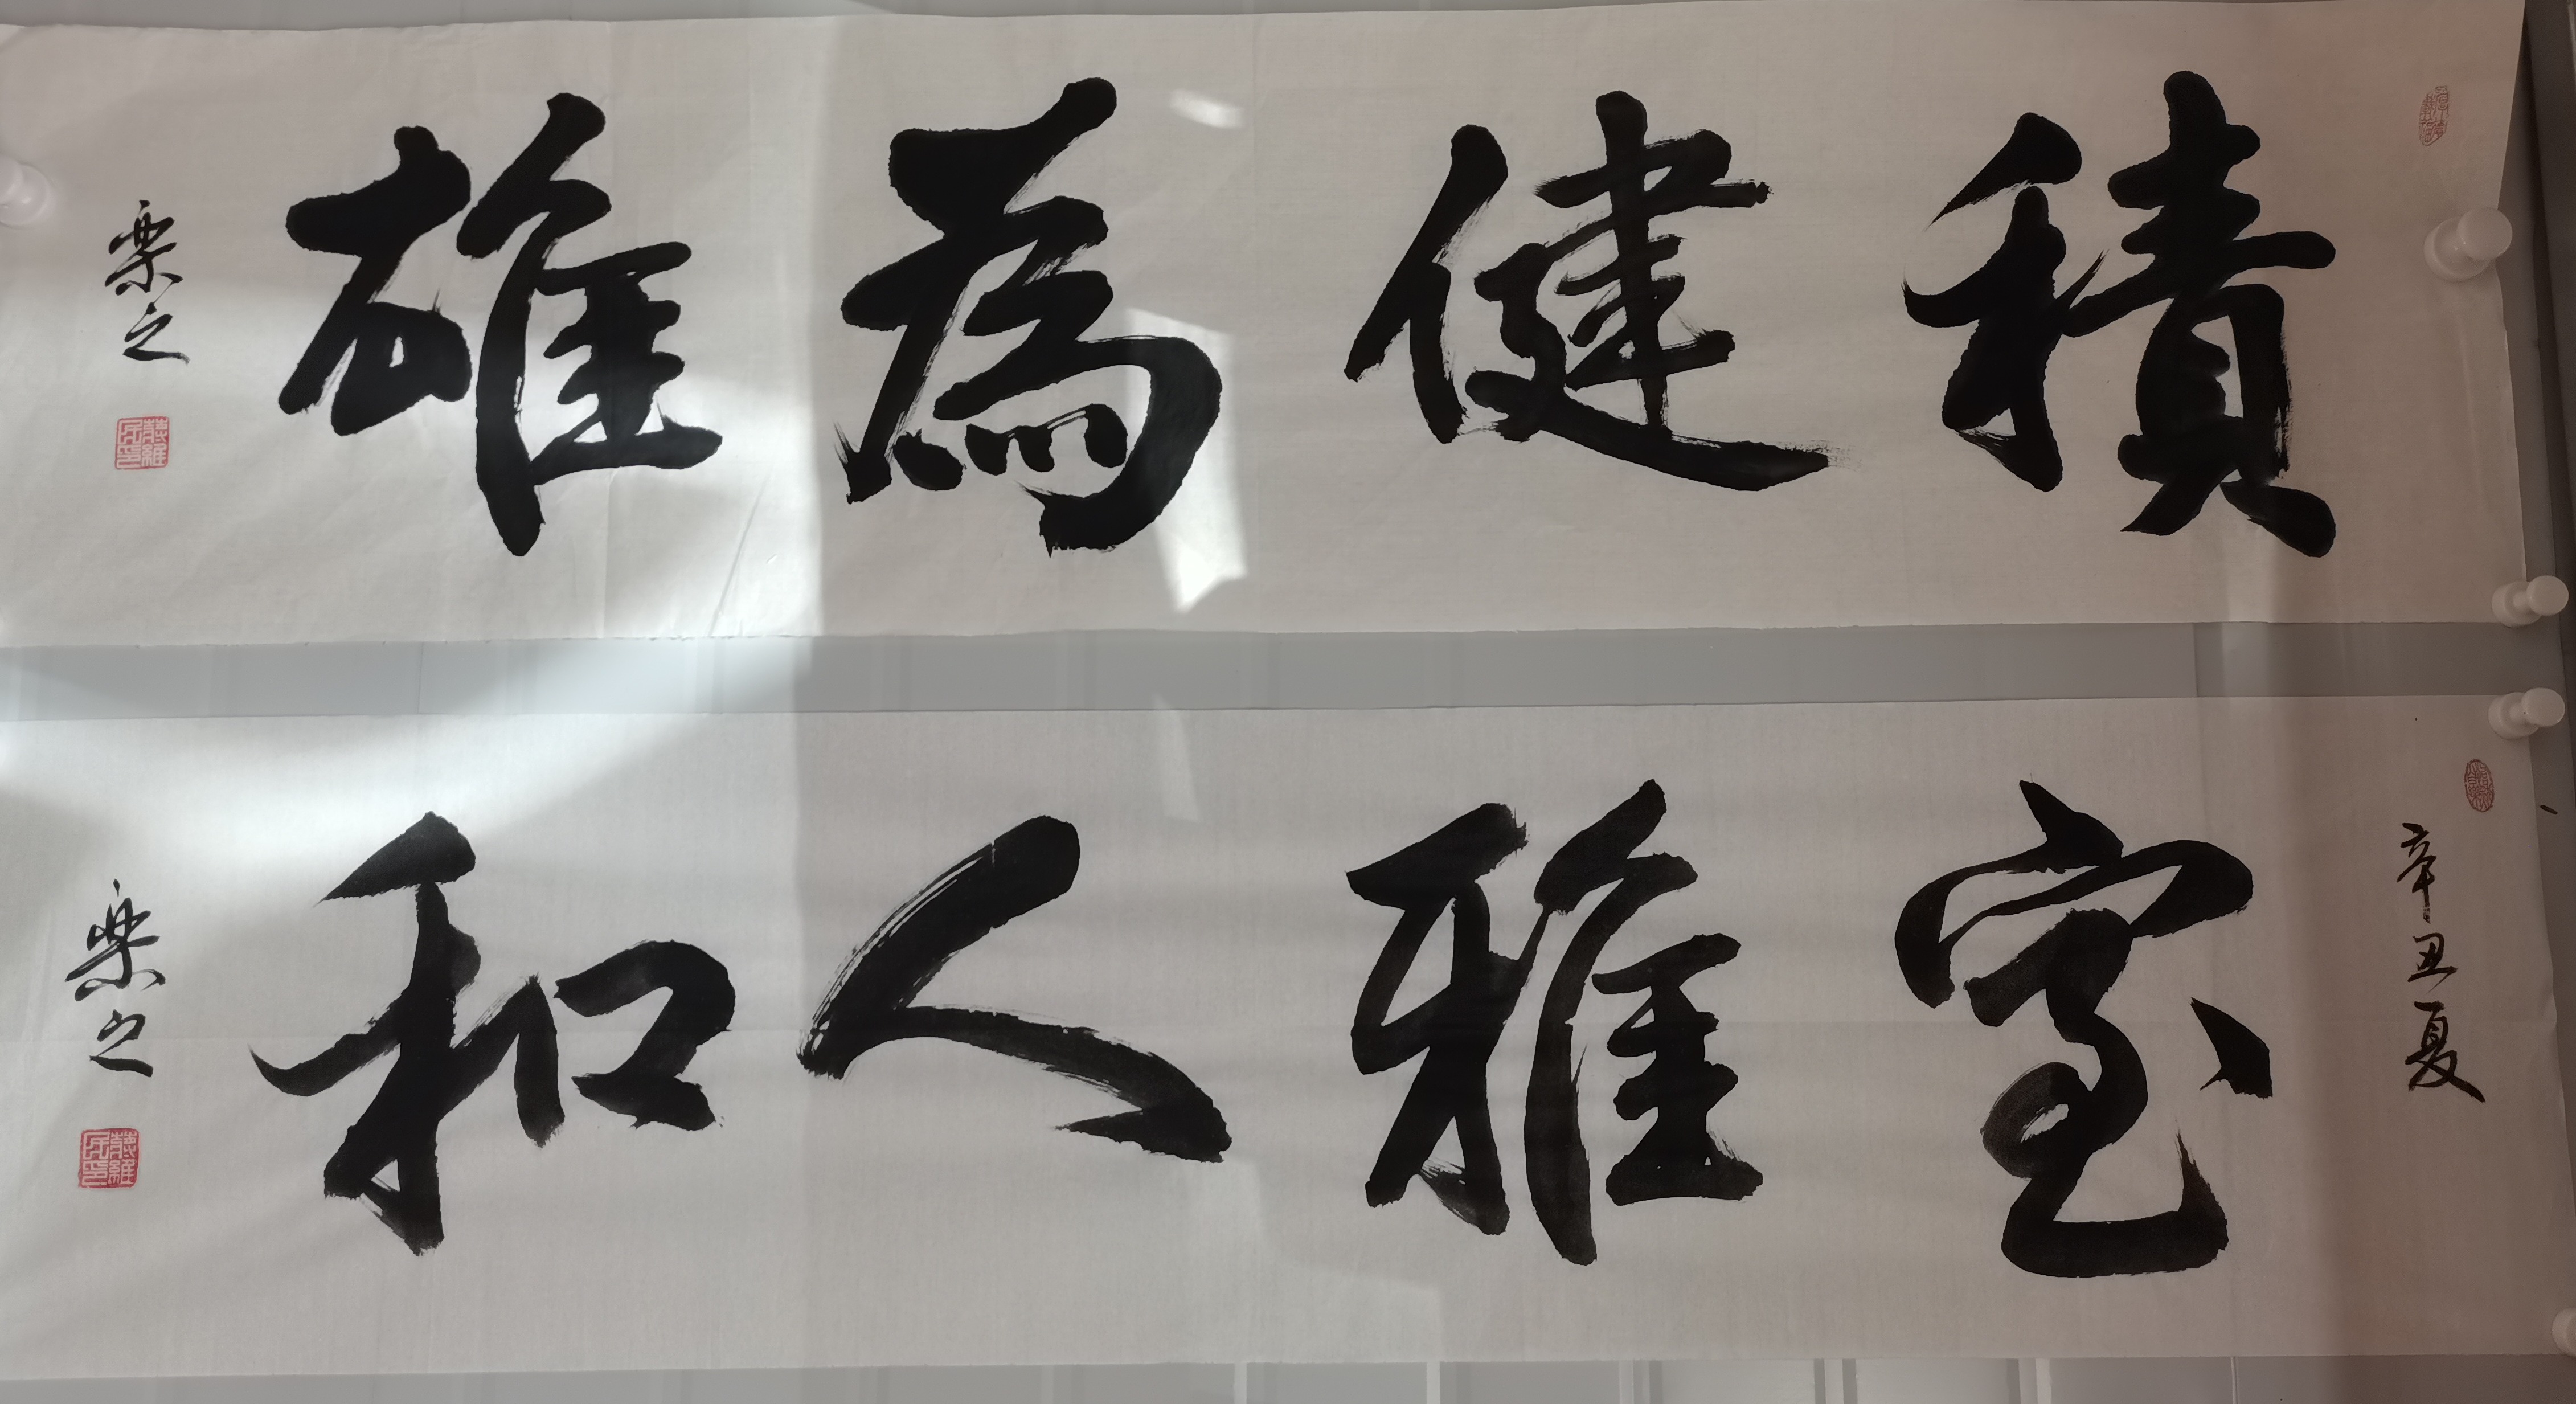 積健為雄
楽之
辛丑夏
室雅人和
楽之